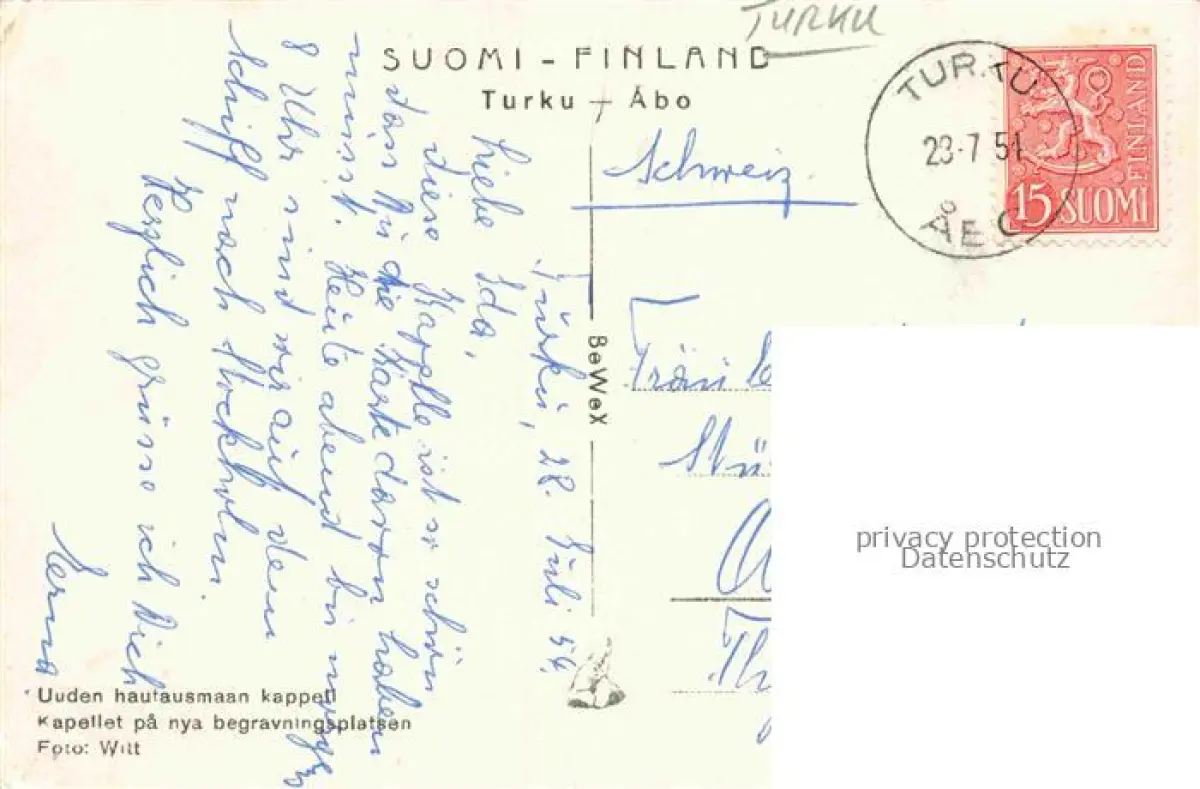 TURKU
SUOMI - FINLAND
Turku - Åbo
TURKU
28-7 54
ÅBO
15 SUOMI
FINLAND
Schweiz
Fräul
Turku, 28. Juli 54.
Liebe Ida,
diese Kapelle ist so schön
dass Du die Karte davon haben
musst. Heute abend bis morgen
8 Uhr sind wir auf dem
Schiff nach Stockholm.
Herzlich grüsse ich Dich
Erna
BeWeX
Uuden hautausmaan kappeli
Kapellet på nya begravningsplatsen
Foto: Witt
privacy protection
Datenschutz